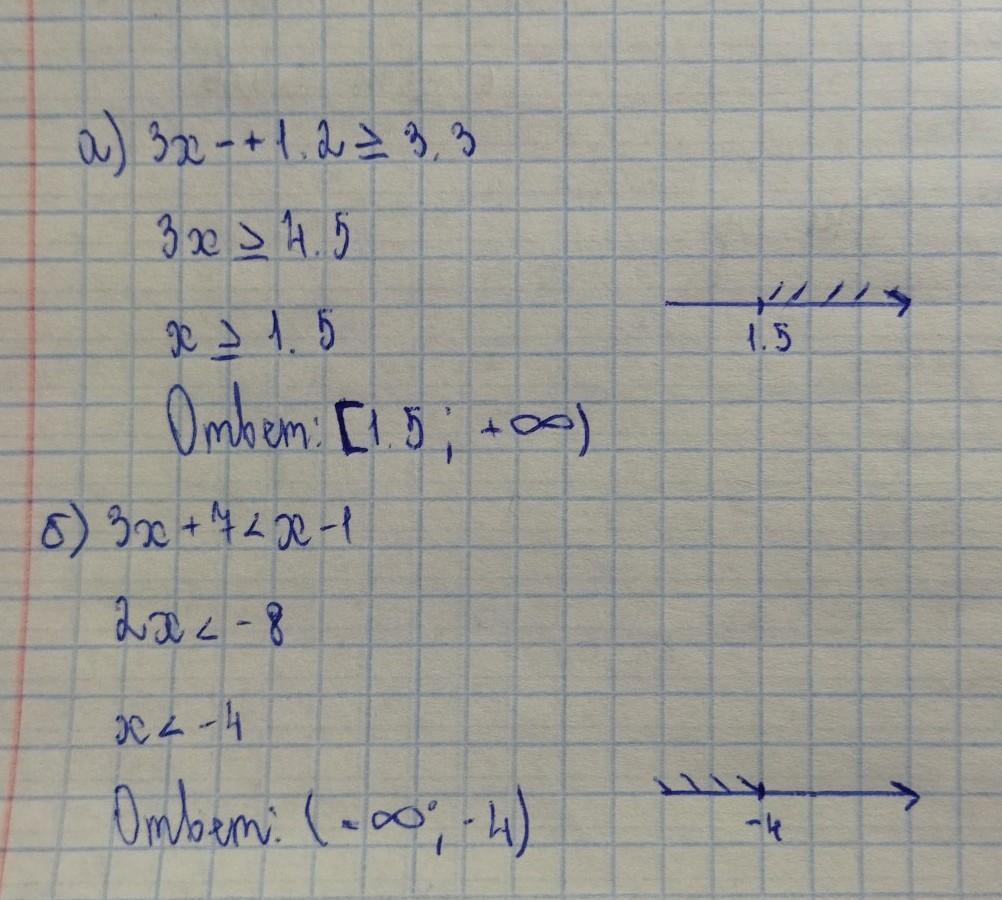 а) 3x-+1.2≥3.3
3x≥4.5
x≥1.5
1.5
Ответ: [1.5; +∞)
б) 3x+7<x-1
2x<-8
x<-4
Ответ: (-∞; -4)
-4